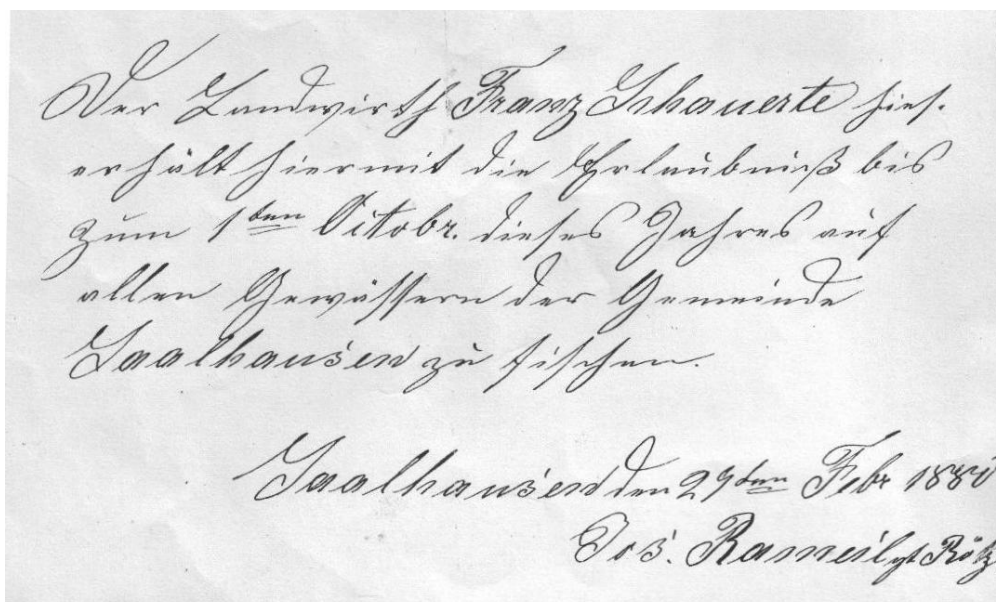 Der Landwirth Franz Schauerte hies.
erhält hiermit die Erlaubniß bis
zum 1ten Octobr. dieses Jahres auf
allen Gewässern der Gemeinde
Saalhausen zu fischen.
Saalhausen den 29ten Febr 1880
Jos. Rameil gt Rötz